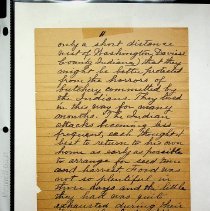 only a short distance
west of Washington, Daviess
County, Indiana, that they
might be better protected
from the horrors of
butchery committed by
the Indians. They lived
in this way for many
months. The Indian
attacks becoming less
frequent, each thought
best to return to his own
home as early as possible
to arrange for seed time
and harvest. Food was
not so plentiful in
those days and the little
they had was quite
exhausted during their